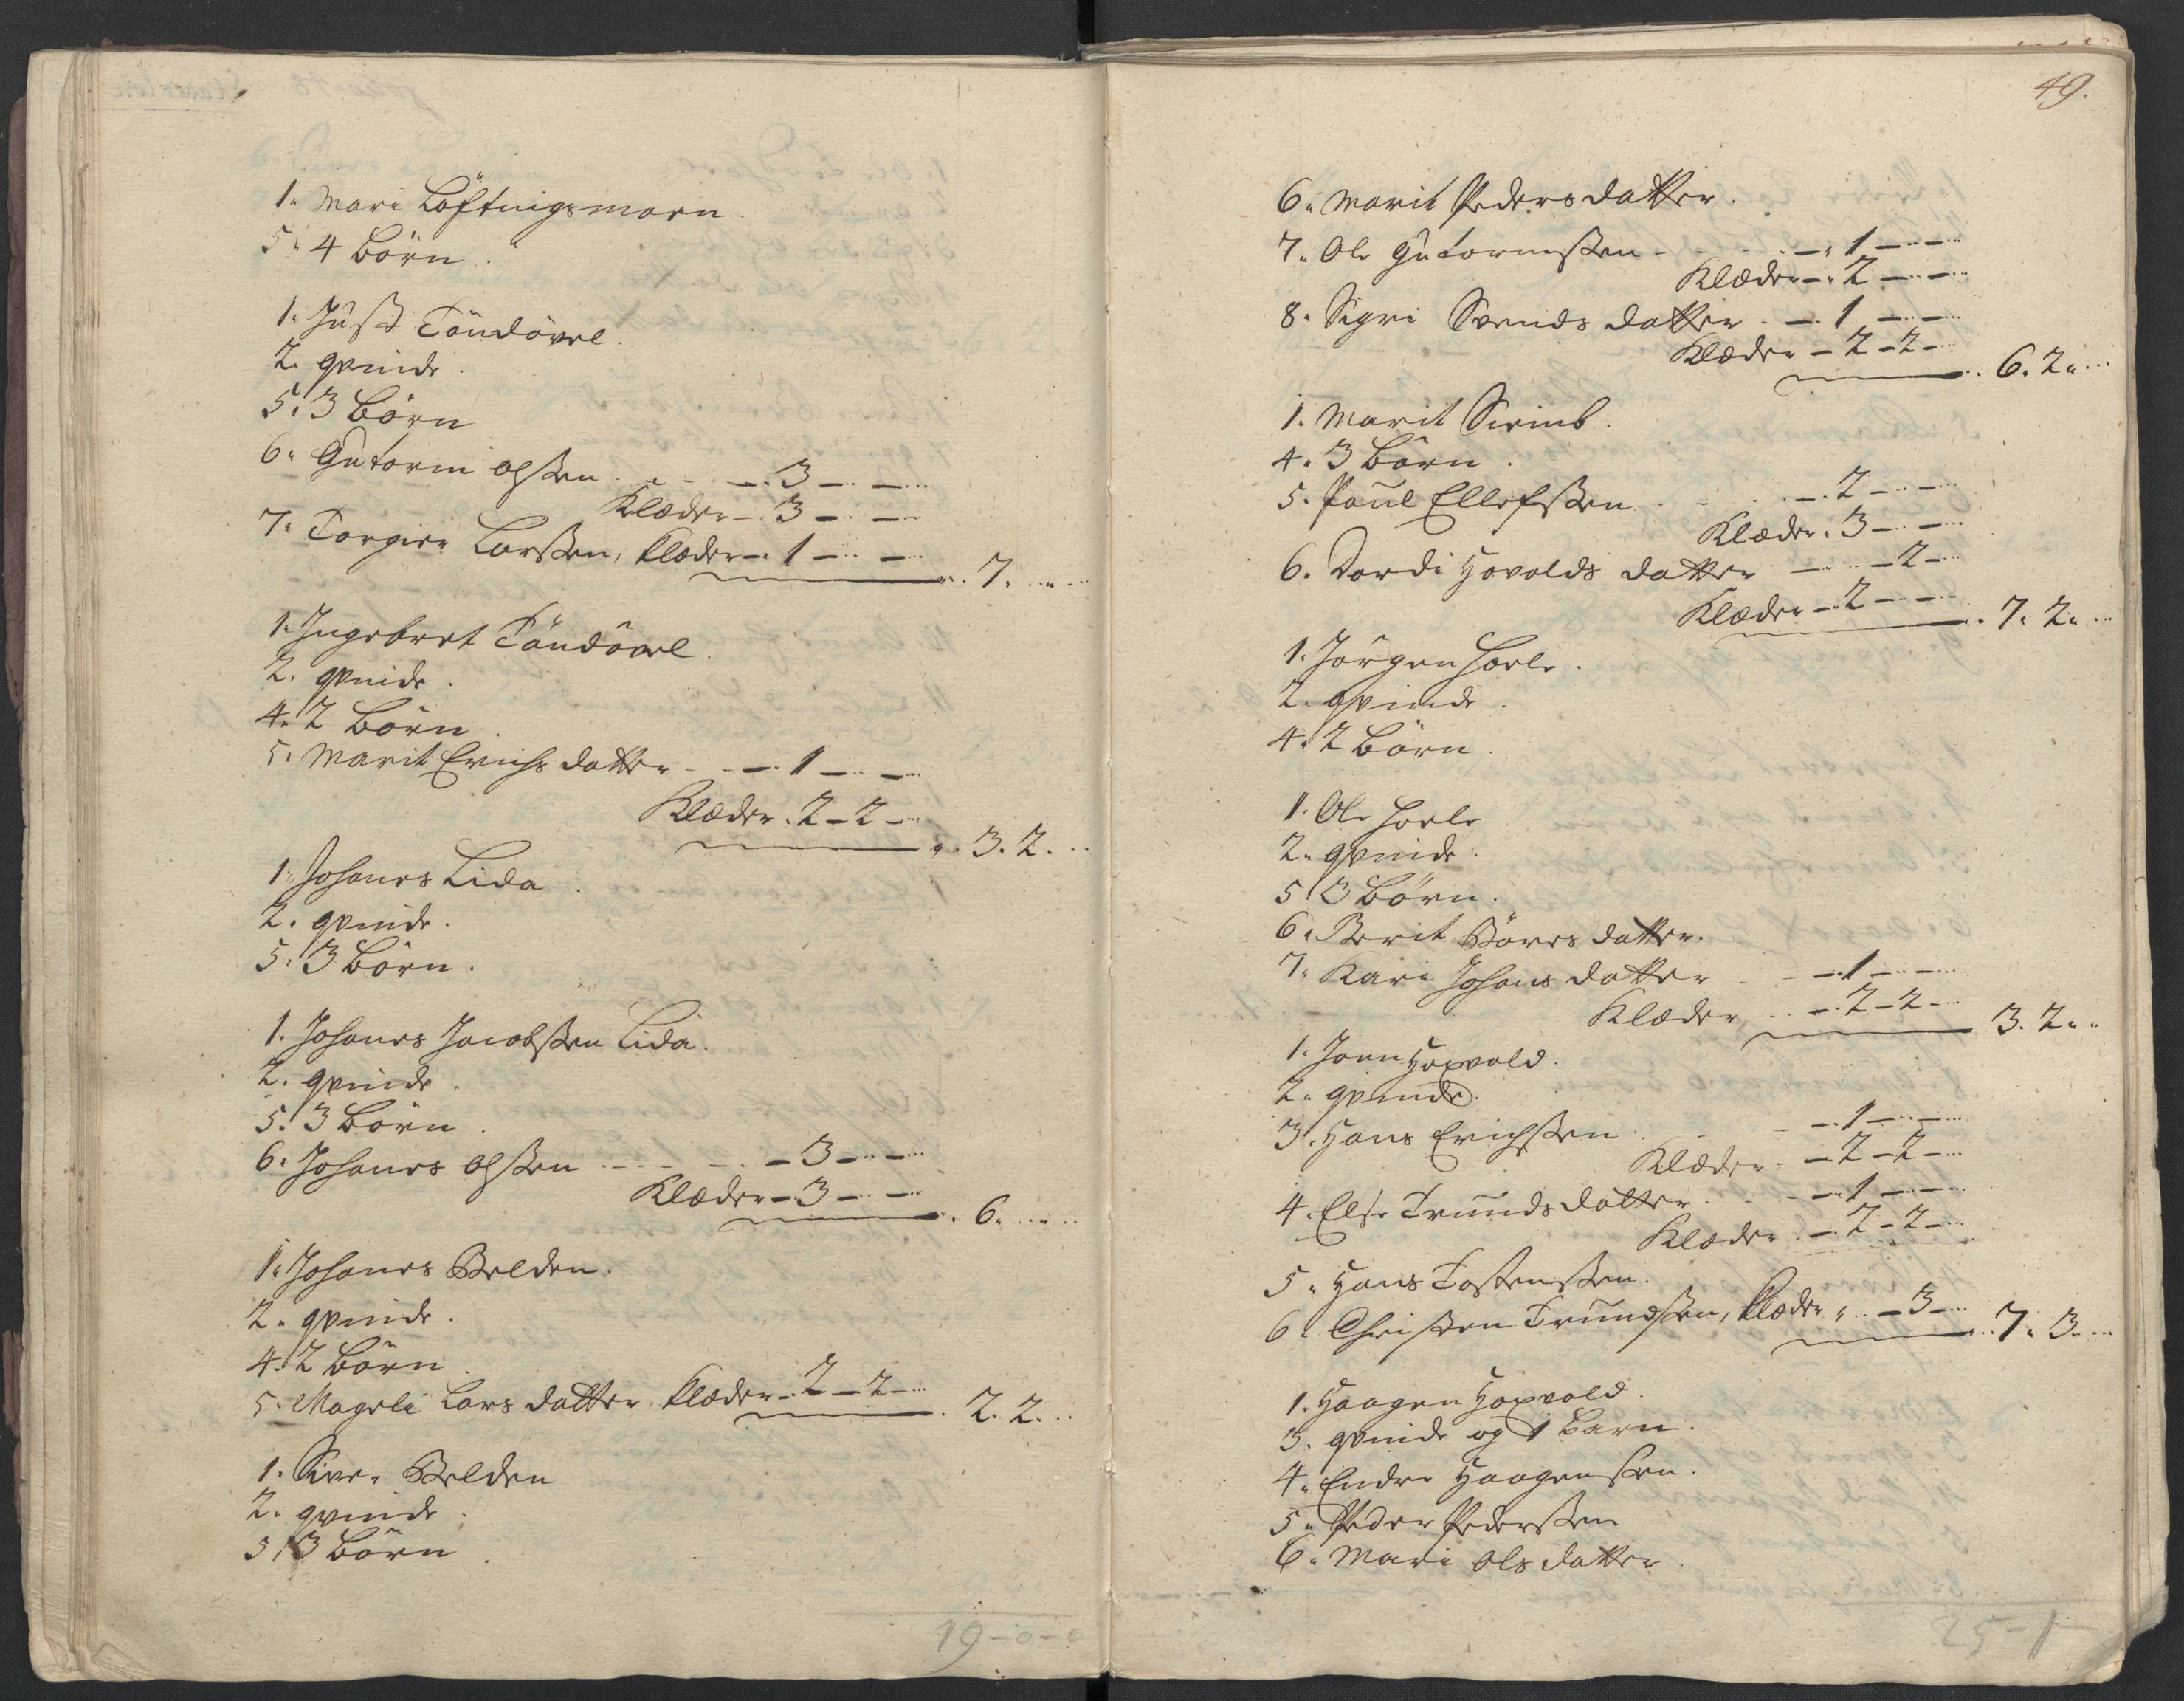 1. Mari Löftnigsmoen.
5. 4 Börn.
1. Just Töndövel.
2. qvinde.
5. 3 Börn
6. Gutorm olssen - - - 3 - -
Klæder - 3 - -
7. Torgier Larssen, klæder - 1 - -
7.
1. Ingebret Töndövel.
2. qvinde.
4. 2 Börn.
5. Marit Erichs datter - - 1 - -
Klæder. 2 - 2 -
3. 2.
1. Johanes Lida.
2. qvinde.
5. 3 Börn.
1. Johanes Jacobssen Lida.
2. qvinde.
5. 3 Börn.
6. Johanes olssen - - - 3 - -
Klæder - 3 - -
6.
1. Johanes Belden.
2. qvinde.
4. 2 Börn.
5. Mageli Lars datter, klæder - 2 - 2 -
2. 2.
1. Siver Belden
2. qvinde.
5. 3 Börn.
19-0-0
49.
6. Marit Peders datter.
7. Ole Gutormssen - - 1 - -
Klæder - 2 - -
8. Sigri Svends datter - 1 - -
Klæder - 2 - 2 -
6. 2.
1. Marit
4. 3 Börn.
5. Poul Ellefssen - 2 - -
Klæder. 3 - -
6. Dordi Hovalds datter - - 2 -
Klæder - 2 - -
7. 2.
1. Jörgen Horle.
2. qvinde.
4. 2 Börn.
1. Ole Horle
2. qvinde.
5. 3 Börn.
6. Berit Börres datter.
7. Kari Johans datter - 1 - -
Klæder - 2 - 2 -
3. 2.
1. Joen Hoxvold.
2. qvinde.
3. Hans Erichssen - 1 - -
Klæder - 2 - 2 -
4. Else Trunds datter - 1 - -
Klæder - 2 - 2 -
5. Hans Tostenssen.
6. Christen Trundssen, klæder - 3 -
7. 3.
1. Haagen Hoxvold.
3. qvinde og 1 Barn.
4. Endre Haagenssen.
5. Peder Pederssen
6. Mari ols datter.
25-1-